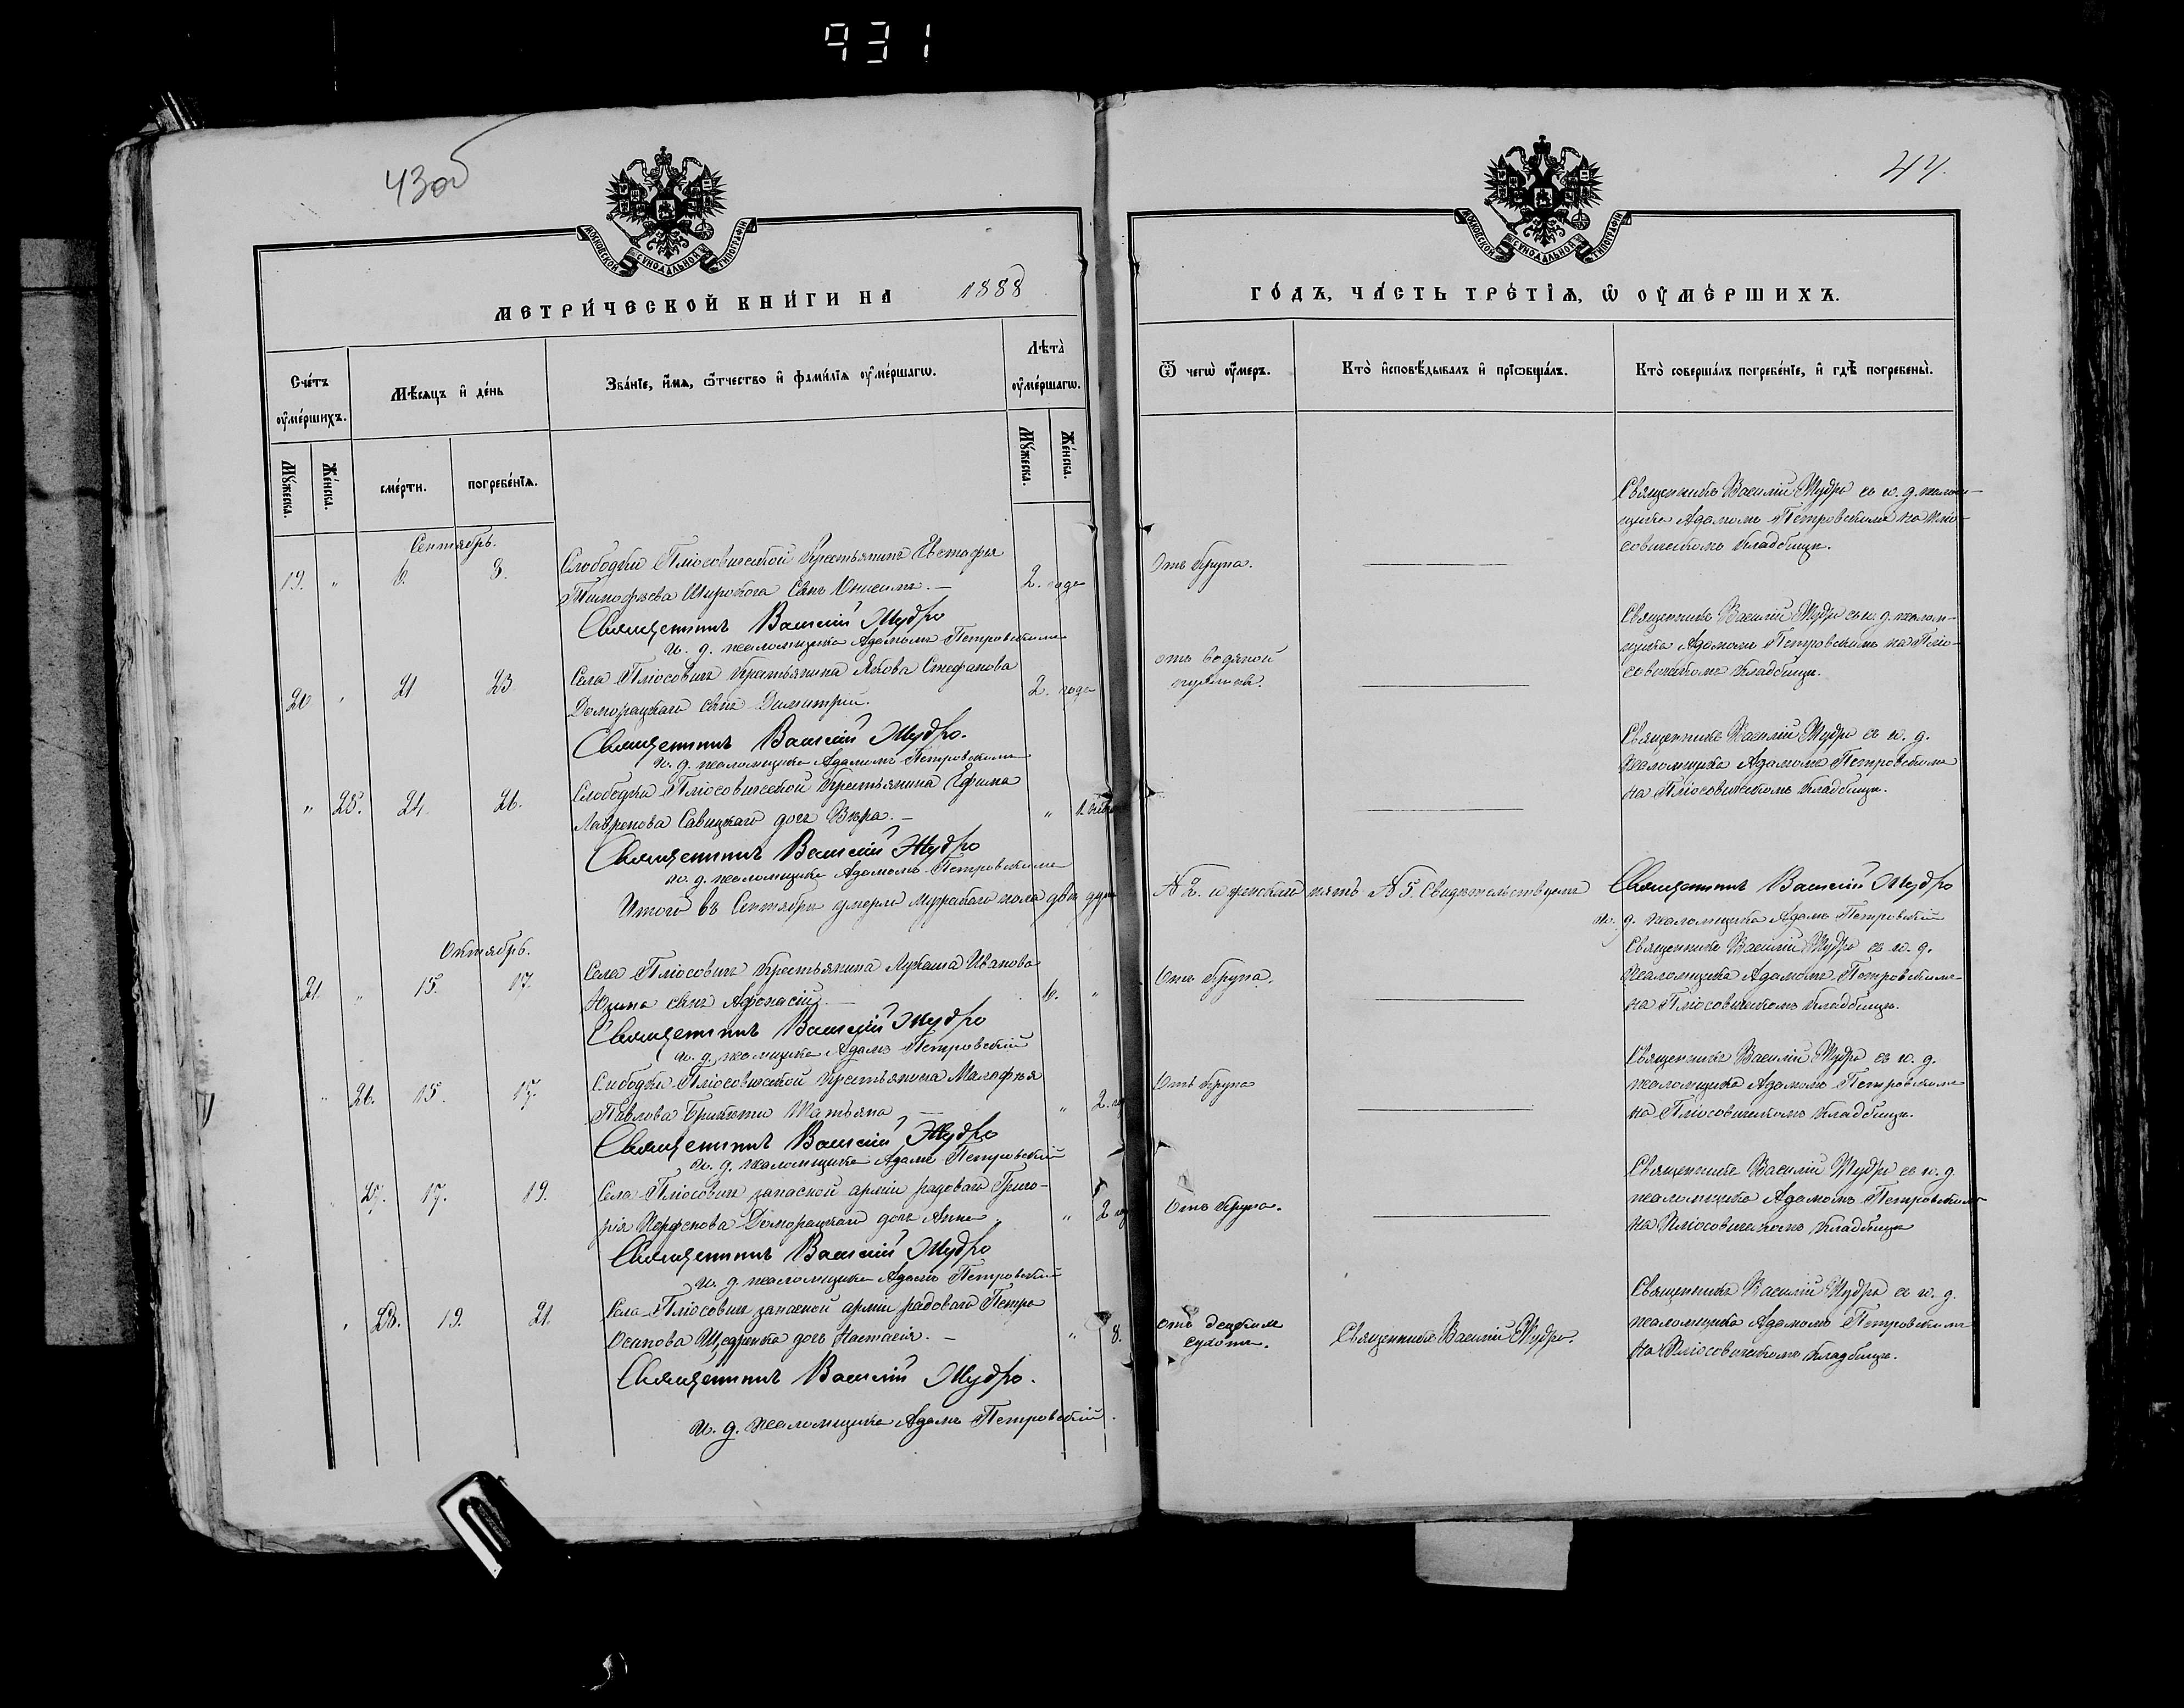 931
43об
МОСКОВСКОЙ СѴНОДАЛЬНОЙ ТИПОГРАФІИ
МЕТРИ́ЧЕСКОЙ КНИ́ГИ НА 1888
Сче́тъ оу҆ме́ршихъ.
Мѣ́сѧцъ и҆ де́нь
Зва́нїе, и҆́мѧ, ѻ҆́тчество и҆ фами́лїѧ оу҆ме́ршагѡ.
Лѣта̀ оу҆ме́ршагѡ.
Мꙋ́жеска.
Же́нска.
сме́рти.
погребе́нїѧ.
Мꙋ́жеска.
Же́нска.
Сентябрь.
19. " 6. 8. Слободки Плюсовицкой крестьянинъ Евстафія 2. года
Тимофѣева Широкога сынъ Онисимъ. —
Священникъ Василій Мудро
и. д. псаломщика Адамомъ Петровскимъ
20 " 21 23 Села Плюсовичъ крестьянина Якова Стефанова 2. года
Доморацкаго сынъ Димитрій.
Священникъ Василій Мудро.
и. д. псаломщика Адамомъ Петровскимъ
" 25. 24. 26. Слободки Плюсовицкой крестьянина Ефима
Лавренова Савицкаго дочь Вѣра. — "
Священникъ Василій Мудро
и. д. псаломщика Адамомъ Петровскимъ
Итого въ Сентябрѣ умерло мужскаго пола двѣ души
Октябрь.
21 " 15. 17. Села Плюсовичъ крестьянина Лукаша Иванова
Юцина сынъ Афонасій. — 6. "
Священникъ Василій Мудро
и. д. псаломщика Адамъ Петровскій
" 26. 15. 17. Слободки Плюсовицкой крестьянина Малафѣя
Павлова Татьяна — " 2. го
Священникъ Василій Мудро
и. д. псаломщика Адамъ Петровскій
" 27. 17. 19. Села Плюсовичъ запасной арміи рядоваго Григо-
рія Парфенова Доморацкаго дочь Анна " 2 го
Священникъ Василій Мудро
и. д. псаломщика Адамъ Петровскій
" 28. 19. 21. Села Плюсовичъ запасной арміи рядоваго Петра
Осипова Щедренка дочь Настасія. — " 8.
Священникъ Василій Мудро.
и. д. псаломщика Адамъ Петровскій.
44.
МОСКОВСКОЙ СѴНОДАЛЬНОЙ ТИПОГРАФІИ
ГО́ДЪ, ЧА́СТЬ ТРЕ́ТЇѦ, Ѡ҆ ОУ҆МЕ́РШИХЪ.
Ѿ чегѡ̀ оу҆́меръ.
Кто̀ и҆сповѣ́дывалъ и҆ прїѡбща́лъ.
Кто̀ соверша́лъ погребе́нїе, и҆ гдѣ̀ погребены̀.
Священникъ Василій Мудро съ и. д. псалом-
щика Адамомъ Петровскимъ на Плю-
Отъ Крупа. — совицкомъ кладбищѣ.
Священникъ Василій Мудро съ и. д. псалом-
отъ водяной — щика Адамомъ Петровскимъ на Плю-
совицкомъ кладбищѣ.
Священникъ Василій Мудро съ и. д.
псаломщика Адамомъ Петровскимъ
— на Плюсовицкомъ кладбищѣ.
№ 2. и женскаго пять № 5. Свидѣтельствуемъ Священникъ Василій Мудро
и. д. псаломщика Адамъ Петровскій
Священникъ Василій Мудро съ и. д.
Отъ Крупа. — псаломщика Адамомъ Петровскимъ
на Плюсовицкомъ кладбищѣ.
Священникъ Василій Мудро съ и. д.
Отъ Крупа — псаломщика Адамомъ Петровскимъ
на Плюсовицкомъ кладбищѣ.
Священникъ Василій Мудро съ и. д.
Отъ Крупа. — псаломщика Адамомъ Петровскимъ
на Плюсовицкомъ кладбищѣ
Священникъ Василій Мудро съ и. д.
отъ сухоты. Священникъ Василій Мудро. псаломщика Адамомъ Петровскимъ
на Плюсовицкомъ кладбищѣ.